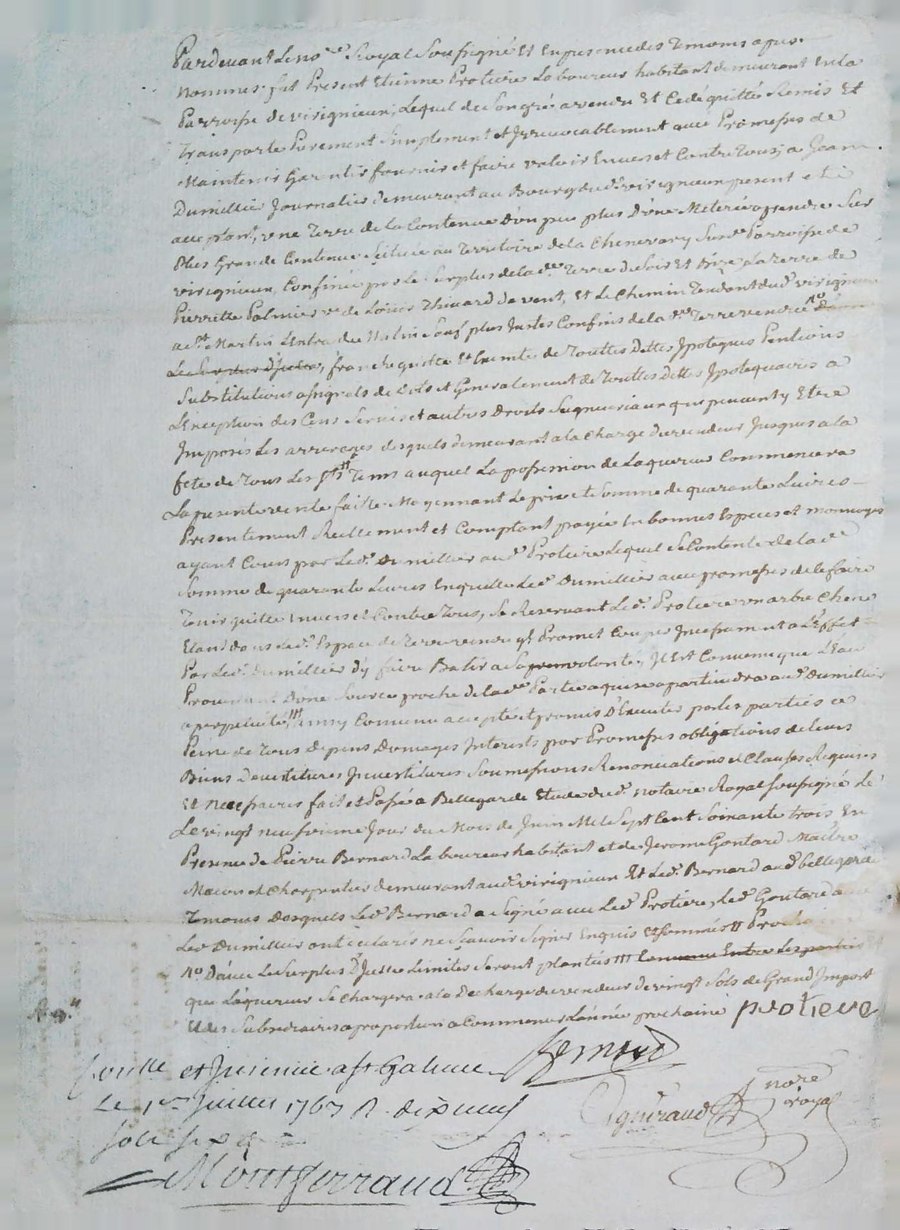 Pardevant Le no.re Royal Soussigné Et En presence des Temoins apres
nommes fut Present Etienne Protiere Laboureur habitant demeurant En la
Parroisse de virignieux, Lequel de Son gré a vendu Et Cedé quitté Remis Et
Transporte Purement Simplement et Irrevocablement avec Promesses de
Maintenir Garentir fournir et faire valoir Envers et Contre Tous, a Jean
Dumillier Journalier demeurant au Bourg dud. virignieux present et
acceptant, une Terre de la Contenue D'un peu plus D'une Meterée a prendre Sur
Plus Grande Contenue Scituée au Territoire de la Chenevary Susd. Parroisse de
virignieux, Confinée par le Surplus de la de Terre de Soir Et Bize, La terre de
Pierrette Palmier ve de Louis Thivard de vent, et Le Chemin Tendant dud. virignieux
a St Martin Lestra du Matin Sauf plus Justes Confins de la de Terre vendue
franche quitte Et Exempte de Touttes Dettes Ipoteques Pentions
Substitutions Asignats de Lots et Generalement de Touttes Dettes Ipotequaires a
L'Exception des Cens Servis et autres Droits Seigneuriaux qui peuvent y Etre
Imposés Les arrerages desquels demeurant a la Charge du vendeur Jusques a la
fete de Tous Les Sts Tems auquel La possession de Laquereur Commencera
La presente vente faitte Moyennant Le prix et Somme de quarante Livres
Presentement Reellement et Comptant payée En bonnes Especes et monnoyes
ayant Cours par Led. Dumillier aud. Protiere Lequel Se Contente de la de
Somme de quarante Livres En quitte Led. Dumillier avec promesses de le faire
Tenir quitte Envers et Contre Tous, Se Reservant Led. Protiere un arbre Chene
Etant dans Led. Espace de Terre vendue ql. Promet Couper Incessament a L'Effet
Par Led. Dumillier d'y faire Batir a Sa volonté, Il Est Convenu que L'Eau
Provenant D'une Source proche de la de Partie aquise apartiendra aud. Dumillier
a perpetuité /// ainsy Convenu accepté et promis D'Executer par les parties a
Peine de Tous Depens Domages Interets par Promesses obligations de leurs
Biens Devetitures Investitures Soumessions Renonciations et Clauses Requises
Et necessaires fait et Passé a Bellegarde Etude dud. notaire Royal Soussigné Le
Le vingt neufvieme Jour du Mois de Juin Mil Sept Cent Soixante trois En
Presence de Pierre Bernard Laboureur habitant et de Jerome Gontard Maitre
Macon et Charpentier demeurant aud. virignieux Et Led. Bernard aud. bellegarde
Temoins Desquels Led. Bernard a Signé avec Led. Protiere, Led. Gontard
Led. Dumillier ont declarés ne Savoir Signer Enquis Et Sommés //
Le Surplus D Juste Limites Seront plantées /// Convenu Entre Les parties
que Laquereur Se Chargera a la Decharge du vendeur de vingt Sols de Grand Import
Et des Subcidiaires a proportion a Commencer L'année prochaine protiere
Bernard
Controllé et Insinué a St Galmier
Le 1er Juillet 1763 R.
Sols Six
Giguiraud no.re royal
Montferrand